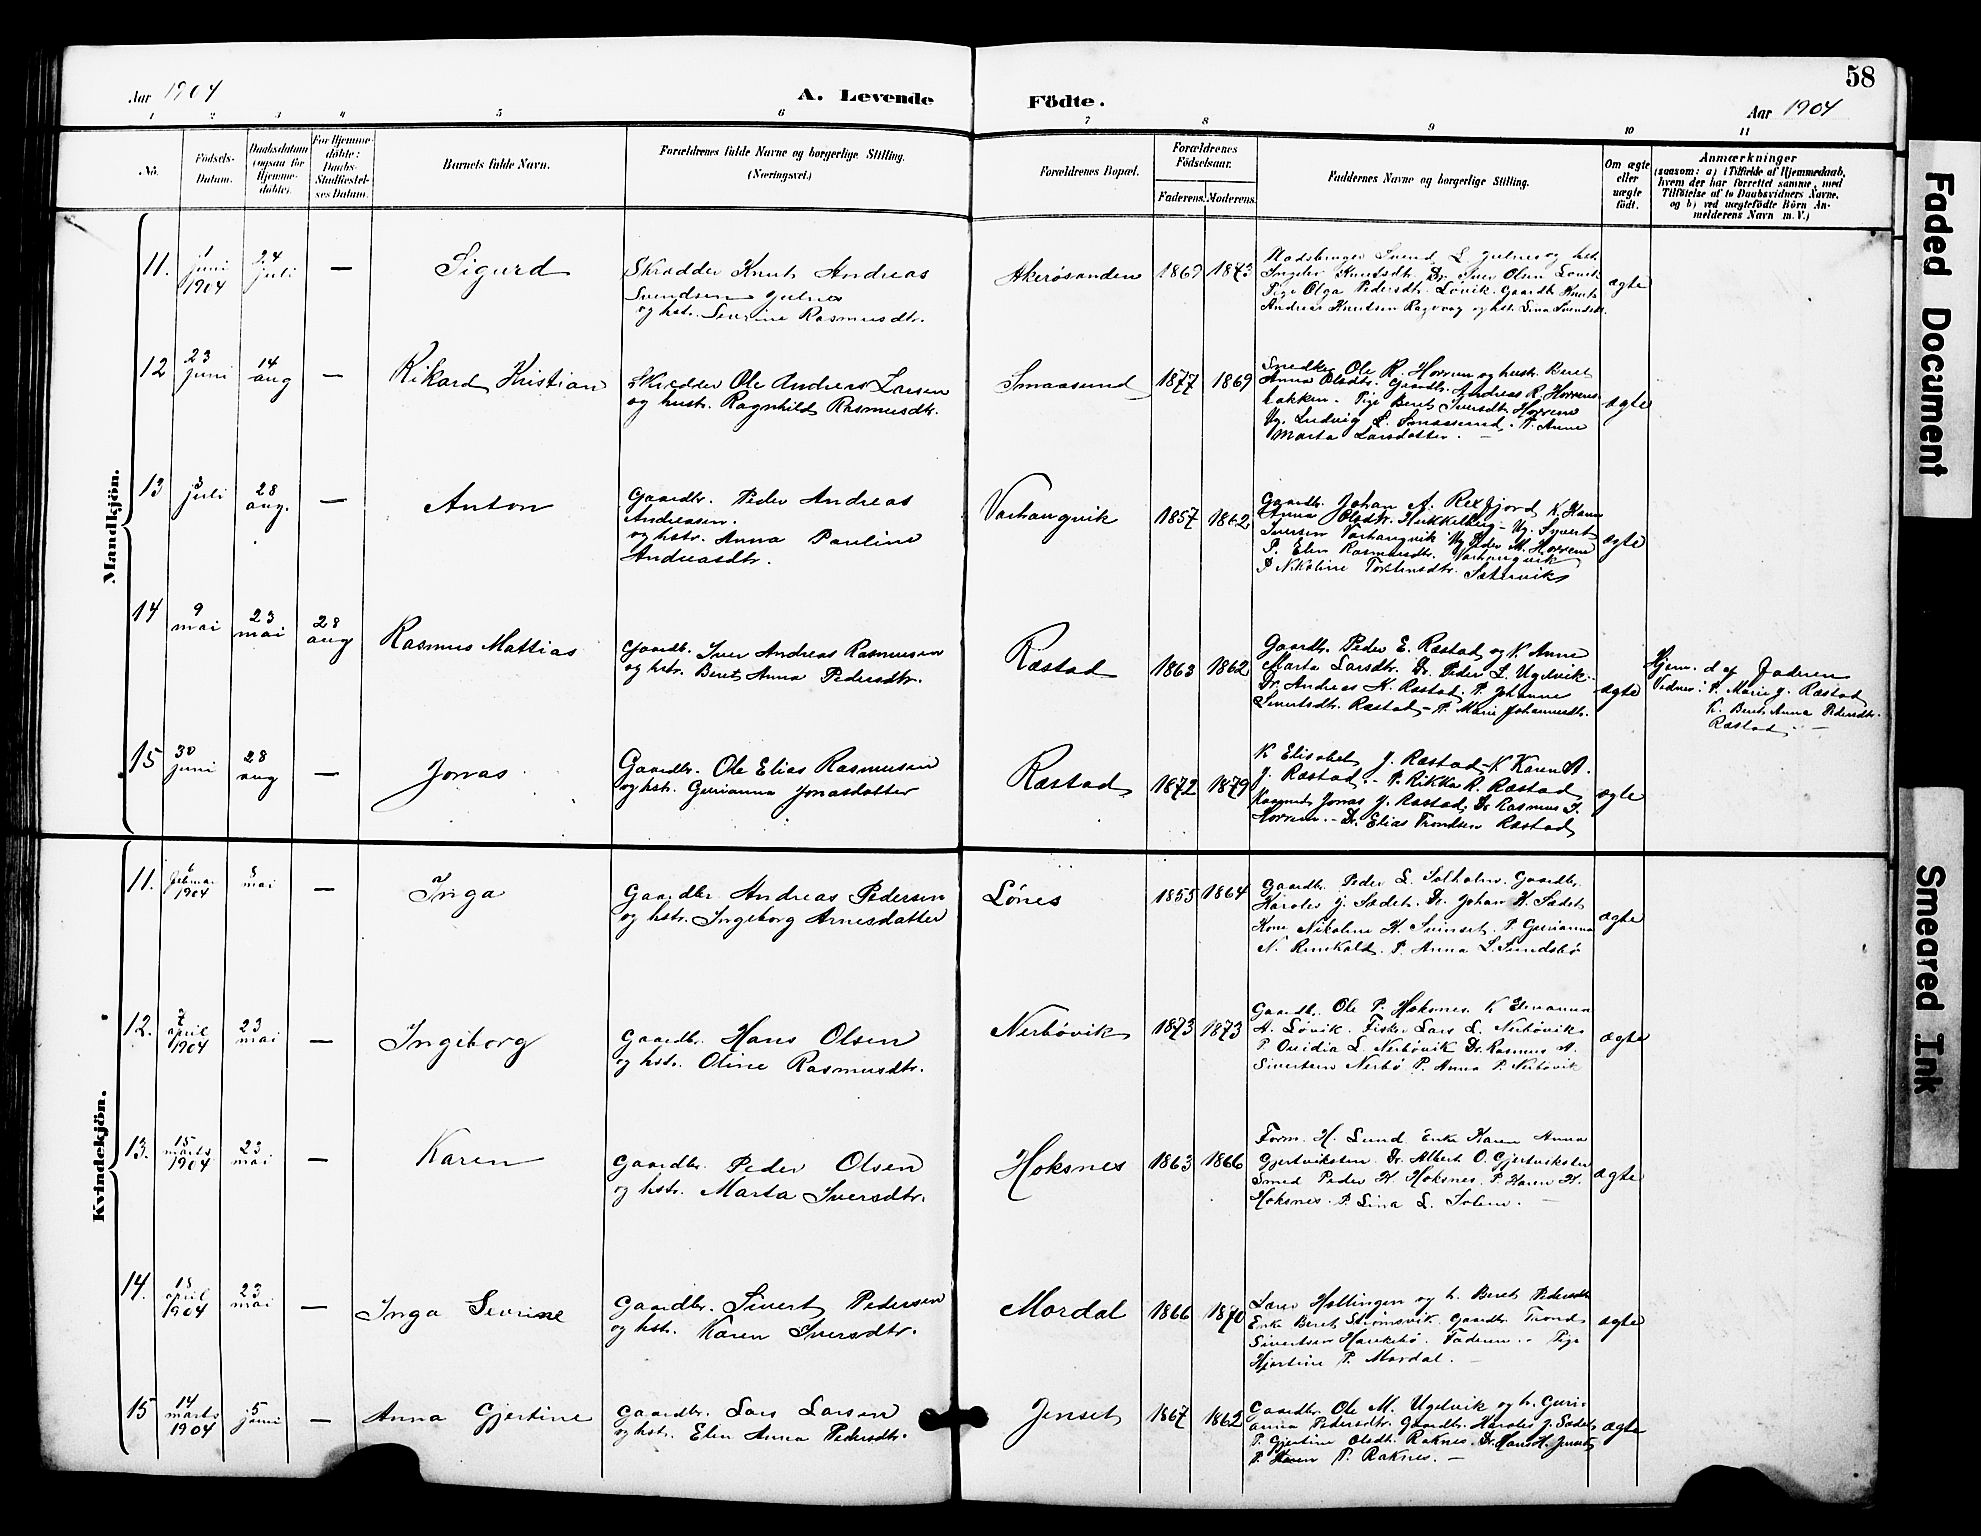 58
Aar 1904
A. Levende Födte.
Aar 1904
1 2 3 4 5 6 7 8 9 10 11
No.
Födsels-
Datum.
Daabsdatum
(ogsaa for
Hjemme-
döbte).
For Hjemme-
döbte:
Daabs-
Stadfæstel-
ses Datum.
Barnets fulde Navn.
Forældrenes fulde Navne og borgerlige Stilling.
(Næringsvei.)
Forældrenes Bopæl.
Forældrenes
Födselsaar.
Faderens. Moderens.
Faddernes Navne og borgerlige Stilling.
Om ægte
eller
uægte
födt.
Anmærkninger
(saasom: a) i Tilfælde af Hjemmedaab,
hvem der har forrettet samme, med
Tilföielse af to Daabsvidners Navne,
og b) ved uægtefödte Börn An-
melderens Navn m. V.)
Mandkjön.
11. 1 juni 1904 24 juli — Sigurd
Skrædder Knut Andreas
Svendsen Julnes
og hst. Severine Rasmusdtr.
Akerøsanden 1869 1873
Svend L. Julnes og hst.
Ingeler Knutsdtr. Dr. Iver Olsen Løvik
Pige Olga Pedersdtr. Løvik. Gaardb. Knut
Andreas Knutsen Ragvaag og hst. Lina Svendsdtr.
ægte
12 23 juni 14 aug — Rikard Kristian
Skrædder Ole Andreas Larsen
og hustr. Ragnhild Rasmusdtr.
Smaasund 1877 1869
Snedker Ole R. Horrem og hustr. Beret
Anna Olsdtr. Gaardbr. Andreas R. Horrems-
bakken. Pige Beret Iversdtr. Horrem
Ug. Ludvig L. Smaasund. P. Anne
Marta Larsdatter. —
ægte
13 3 juli 28 aug. — Anton
Gaardbr. Peder Andreas
Andreasen.
og hstr. Anna Pauline
Andreasdtr.
Varhaugvik 1857 1862
Gaardbr. Johan A. Rexfjord K. Hanna
Anna Olsdtr. Hukkelberg – Ug. Syvert
Iversen Varhaugvik Ug. Peder M. Horrem
P. Elen Rasmusdtr. Varhaugvik
P. Nikoline Torstensdtr. Sætervik
ægte
14 9 mai 23 mai 28 aug Rasmus Mattias
Gaardb. Iver Andreas Rasmusen
og hstr. Beret Anna Pedersdtr.
Ræstad 1863 1862
Gaardbr. Peder E. Ræstad og K. Anne
Marta Larsdtr. Dr. Peder L. Ugelvik.
Dr. Andreas K. Ræstad. P. Johanne
Sivertsdtr. Ræstad – P. Marie Johannesdtr.
ægte
Hjem. d. af Faderen
Vidner: P. Marie J. Ræstad
K. Beret Anna Pedersdtr.
Ræstad. —
15 30 juni 28 aug — Jonas
Gaardbr. Ole Elias Rasmusen
og hst. Gurianna Jonasdatter
Ræstad 1872 1879
K Elisabet J. Ræstad K Karen A.
J. Ræstad. – P. Rikka R. Ræstad
Jonas J. Ræstad. Dr. Rasmus I.
Horrem. – Dr. Elias Trondsen Ræstad
ægte
Kvindekjön.
11. 6 februar 1904 5 mai — Inga
Gaardbr. Andreas Pedersen
og hst. Ingeborg Arnesdatter
Lønes 1855 1864
Gaardbr. Peder L. Solholm. Gaardbr.
Karoles J. Sædet. Dr. Johan K. Sædet
Kone Nikoline K. Svinset. P. Gurianna
N. Rindkald. P. Anna L. Sundsbø
ægte
12. 7 april 1904 23 mai — Ingeborg
Gaardbr. Hans Olsen
og hstr. Oline Rasmusdtr.
Nerbøvik 1873 1873
Gaardb. Ole P. Hoksnes. K
A. Løvik. Fisker Lars L. Nerbøvik
P Ovidia L. Nerbøvik Dr. Rasmus A.
Sivertsen Nerbø P. Anna P. Nerbøvik
ægte
13. 15 marts 1904 23 mai — Karen
Gaardbr. Peder Olsen
og hstr. Marta Iversdtr.
Hoksnes 1863 1866
Form. H. Lund Enke Karen Anna
Gjertviksten. Dr. Albert O. Gjertviksten
Smed Peder K. Hoksnes. P. Karen K.
Hoksnes. P. Lina L. Solem. —
ægte
14. 18 april 1904 23 mai — Inga Severine
Gaardbr. Sivert Pedersen
og hst. Karen Iversdtr.
Mordal 1866 1870
Hollingen og h. Beret Pedersdtr
Enke Beret Strømsvik. Gaardbr. Trond
Sivertsen Haukebø. Faderen. Pige
Hjertine P. Mordal. —
ægte
15 14 marts 1904 5 juni — Anna Gjertine
Gaardbr. Lars Larsen
og hst. Elen Anna Pedersdtr.
Jenset 1867 1862
Gaardbr. Ole M. Ugelvik og h. Guri-
anna Pedersdtr. Gaardbr. Karoles J. Sædet
P. Gjertine Olsdtr. Raknes. Dr. Hans H. Jenset
P. Karen P. Raknes. —
ægte
Faded Document
Smeared Ink